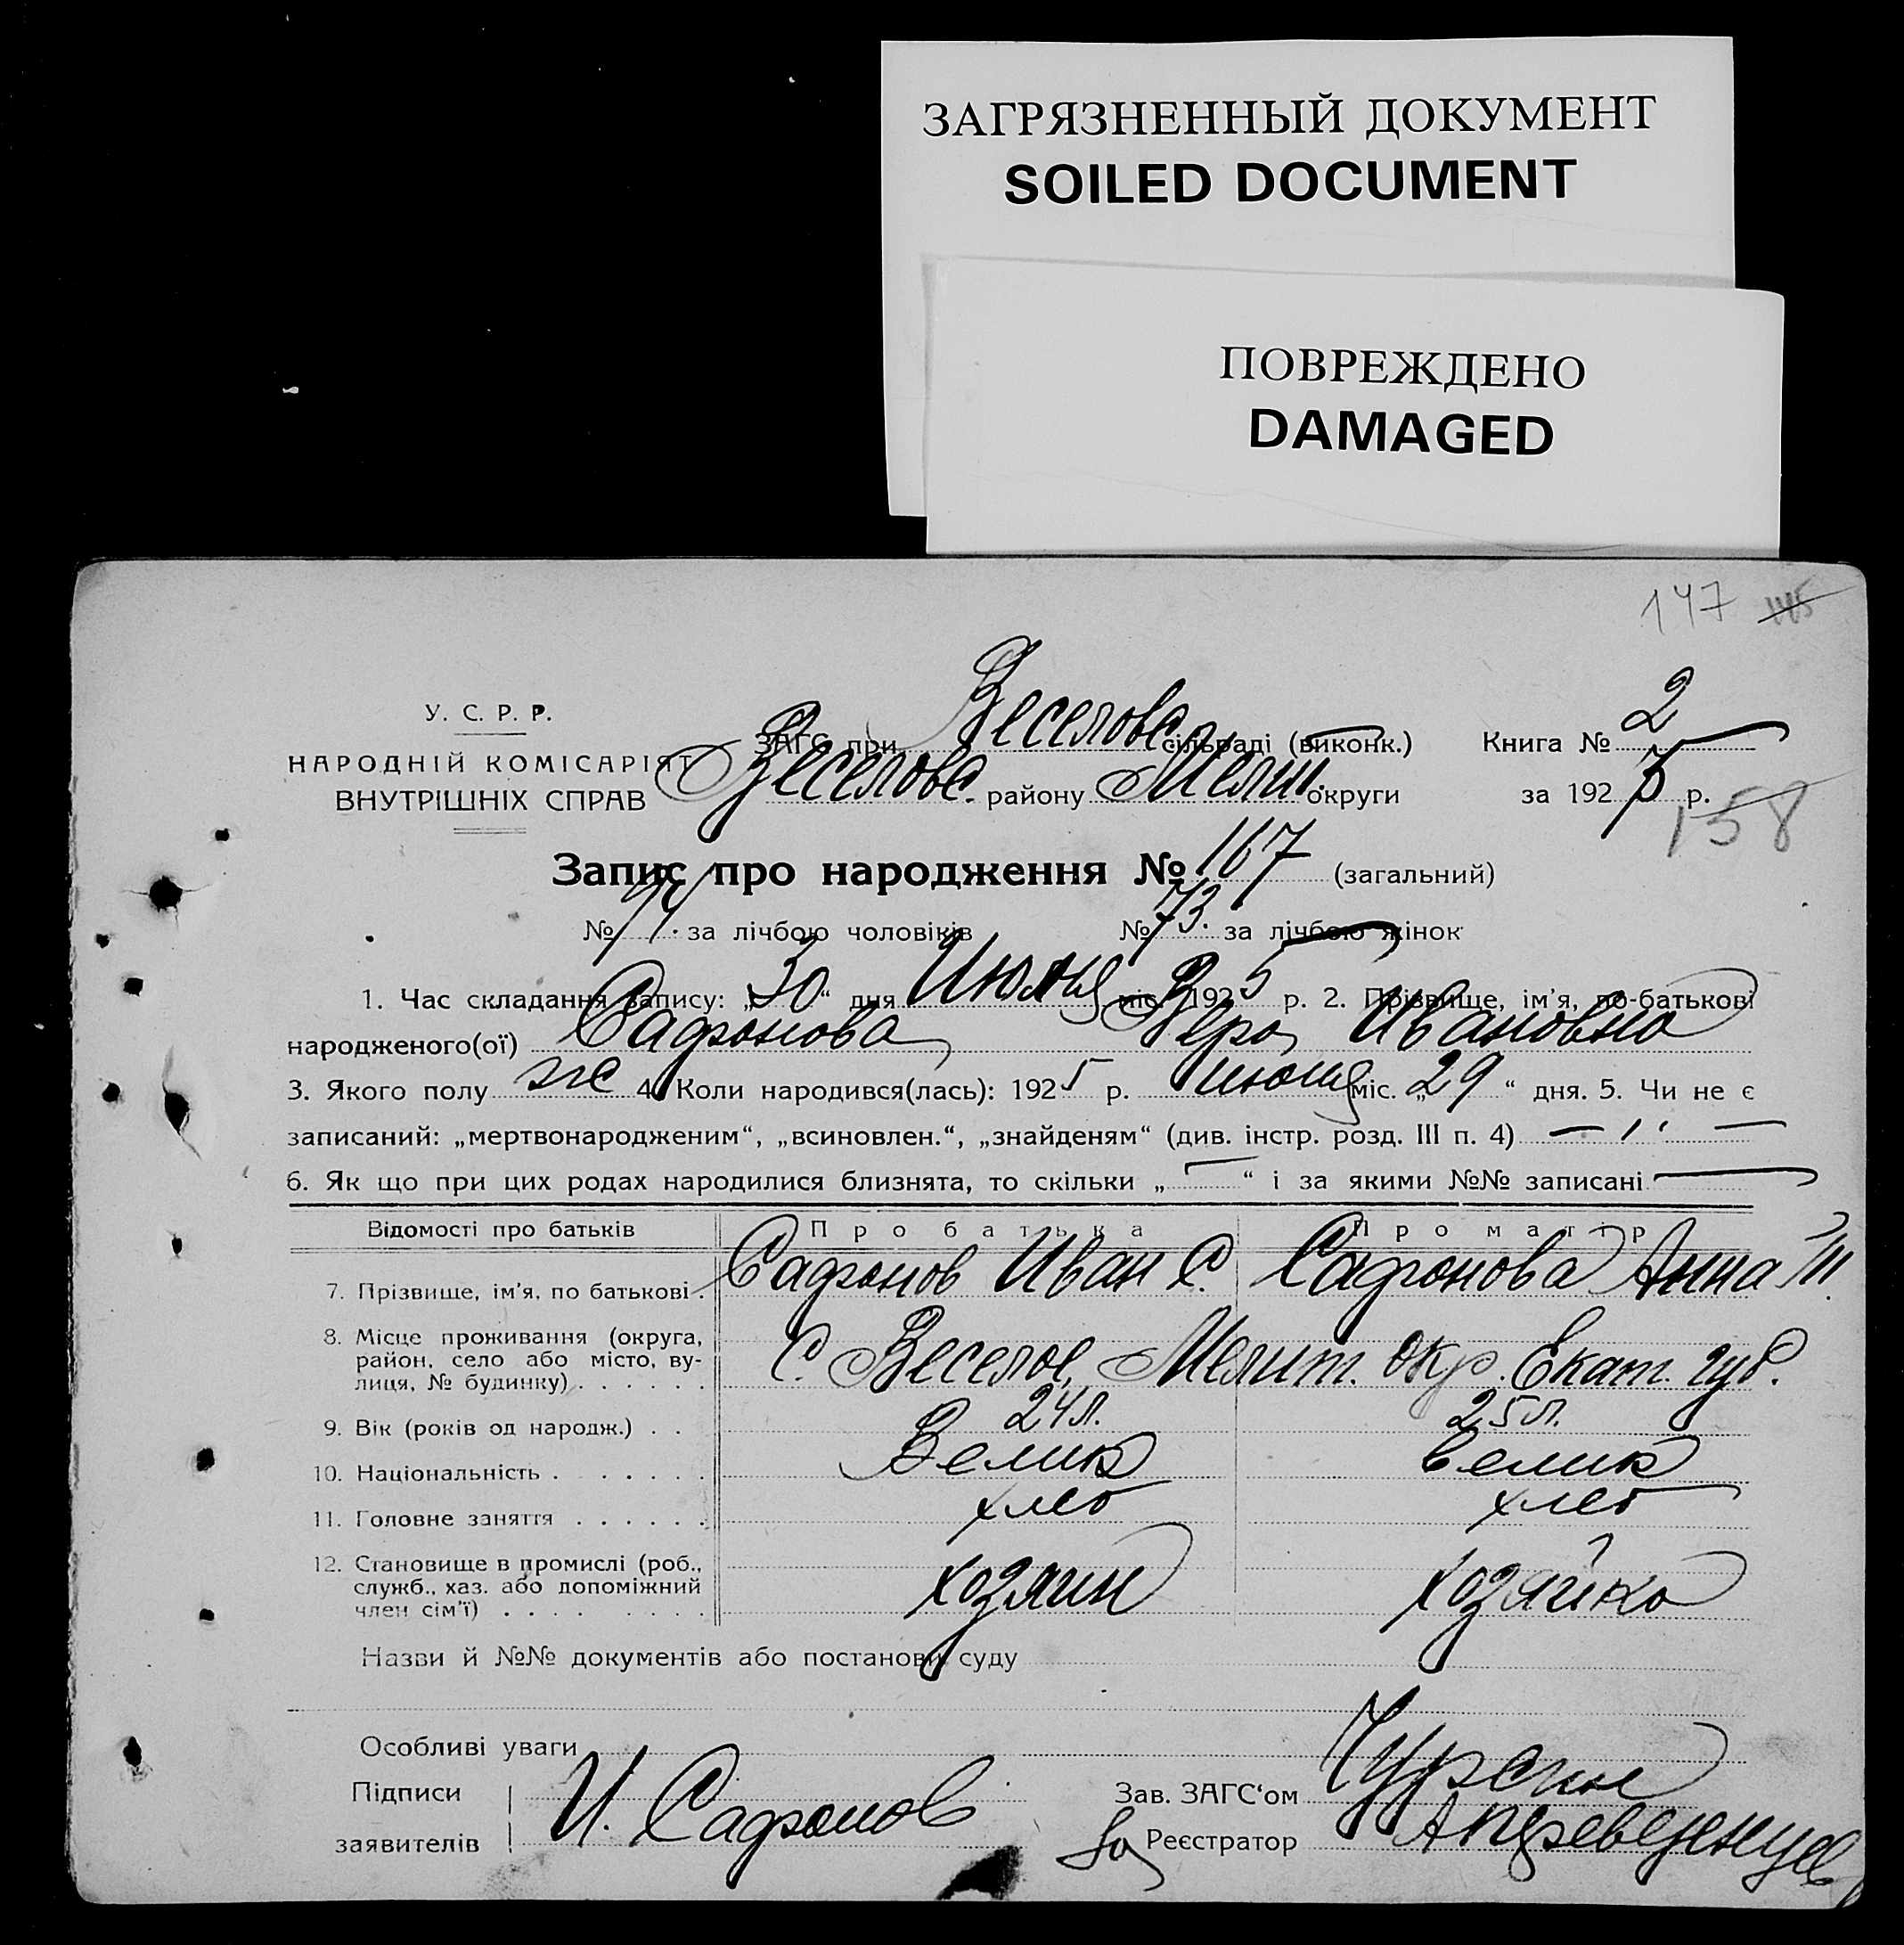 ЗАГРЯЗНЕННЫЙ ДОКУМЕНТ
SOILED DOCUMENT
ПОВРЕЖДЕНО
DAMAGED
147
У. С. Р. Р.
НАРОДНІЙ КОМІСАРІЯТ
ВНУТРІШНІХ СПРАВ
ЗАГС при Веселовс. сільраді (виконк.) Книга № 2
Веселовс. району Мелит. округи за 1925 р.
158
Запис про народження № 167 (загальний)
№ за лічбою чоловіків № 73. за лічбою жінок
1. Час складання запису: „30“ дня Июля міс. 1925 р. 2. Прізвище, ім'я, по-батькові
народженого(ої) Сафонова Вера Ивановна
3. Якого полу ж 4. Коли народився(лась): 1925 р. июля міс. „29“ дня. 5. Чи не є
записаний: „мертвонародженим“, „всиновлен.“, „знайденям“ (див. інстр. розд. III п. 4) — „ —
6. Як що при цих родах народилися близнята, то скільки „—“ і за якими №№ записані —
Відомості про батьків Про батька Про матір
7. Прізвище, ім'я, по батькові . Сафонов Иван С. Сафонова Анна
8. Місце проживання (округа,
район, село або місто, ву-
лиця, № будинку) . . . . . . С. Веселое, Мелит. окр. Екат. губ.
9. Вік (років од народж.) . . 24 л. 25 л.
10. Національність . . . . . . . Велик велик
11. Головне заняття . . . . . . хлеб хлеб
12. Становище в промислі (роб.,
служб., хаз. або допоміжний
член сім'ї) . . . . . . . . . хозяин хозяйка
Назви й №№ документів або постанови суду
Особливі уваги
Підписи
заявителів И. Сафонов
Зав. ЗАГС'ом
За Реєстратор